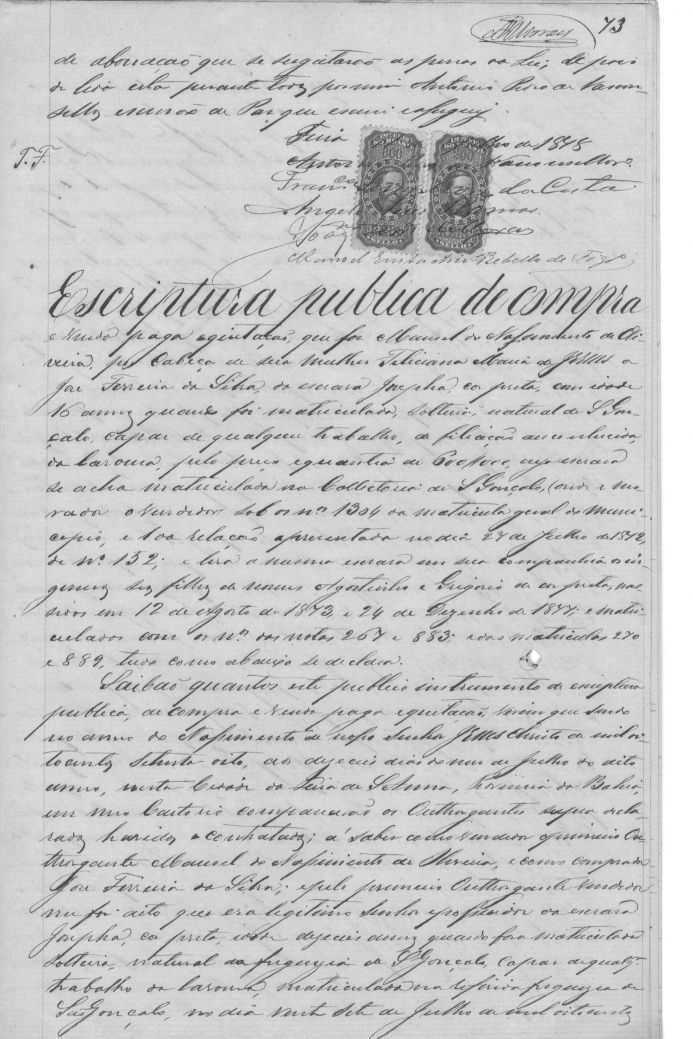 73
de aborracaõ que se sugitaraõ as penas da Lei; de pois
de lido esta perante todos por mim Antonio Roso de Vascon-
sellos escrivaõ de Paz que escrevi e assiguei.
Feira de 1878
T. F.
Vasconsellos
Fran.co da Costa
Angelo
Manoel Rebello de Figdo
Escriptura publica de compra
e venda paga e quitaçaõ, que faz Manoel do Nascimento de Oli-
veira, por Cabeça de sua mulher Feliciana Maria de Jesus a
José Ferreira da Silva, da escrava Josepha, cor preta, com idade
16 annos quando foi matriculada, solteira, natural de S Gon-
çalo, capaz de qualquer trabalho, de filiação desconhecida,
da lavoura, pelo preço e quantia de cuja escrava
se acha matriculada na Collectoria de S Gonçalo, (onde é mo-
rador o vendedor sob os nos 1304 da matricula geral do muni-
cipio, e 1 da relaçaõ apresentada no dia 27 de Julho de 1872,
de No 152; e leva a mesma escrava em sua companhia os in-
genuos seus filhos de nomes Agostinho e Gregorio de cor preta, nas-
cidos em 12 de Agosto de 1873, e 24 de Dezenbro de 1877; e matri-
culados com os nos das notas 267 e 883; e das matriculas 270
e 889, tudo como abaixo se declara.
Saibaõ quantos este publico instrumento de escriptura
publica, de compra e venda paga e quitaçaõ, virem que sendo
no anno do Nascimento de nosso Senhor Jesus Christo de mil oi-
tocentos setenta oito, aos dezeseis dias do mez de Julho do dito
anno, nesta Cidade da Feira de Sta Anna, Provincia da Bahia,
em meu Cartorio compareceraõ os Outhorgantes supra decla-
rados havidos e contratados; a saber como vendedor o primeiro Ou-
thorgante Manoel do Nascimento de Oliveira, e como comprador
José Ferreira da Silva; e pelo primeiro Outhorgante vendedor
me foi dito que era legitimo Senhor e possuidor da escrava
Josepha, cor preta, idade dezeseis annos quando fora matriculada
solteira, natural da freguezia de S Gonçalo, capaz de qualqr
trabalho da lavoura, matriculada na referida freguezia de
São Gonçalo, no dia vente sete de Julho de mil oitocentos